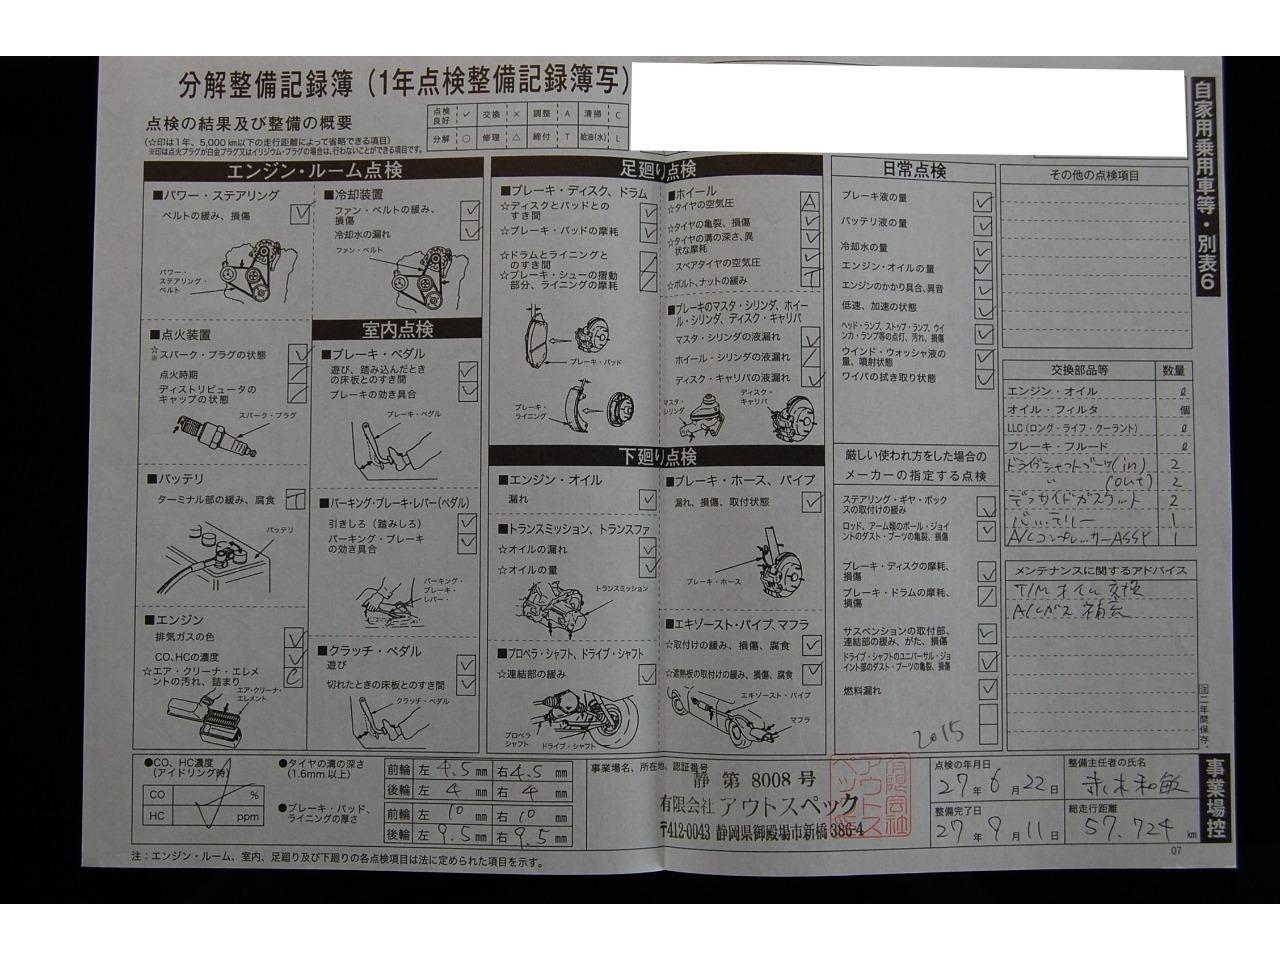 分解整備記録簿（1年点検整備記録簿写）
点検の結果及び整備の概要
（☆印は1年、5,000km以下の走行距離によって省略できる項目）
※印は点火プラグが白金プラグ又はイリジウム・プラグの場合は、行わないことができる項目です。
点検良好 ✓ 交換 × 調整 A 清掃 C
分解 ○ 修理 △ 締付 T 給油(水) L
自家用乗用車等・別表6
エンジン・ルーム点検
■パワー・ステアリング
ベルトの緩み、損傷 ✓
パワー・
ステアリング・
ベルト
■冷却装置
ファン・ベルトの緩み、
損傷 ✓
冷却水の漏れ ✓
ファン・ベルト
■点火装置
☆
※スパーク・プラグの状態 ✓
点火時期
ディストリビュータの
キャップの状態
スパーク・プラグ
■バッテリ
ターミナル部の緩み、腐食 T
バッテリ
■エンジン
排気ガスの色 ✓
CO、HCの濃度 ✓
☆エア・クリーナ・エレメ
ントの汚れ、詰まり C
エア・クリーナ・
エレメント
室内点検
■ブレーキ・ペダル
遊び、踏み込んだとき
の床板とのすき間 ✓
ブレーキの効き具合 ✓
ブレーキ・ペダル
■パーキング・ブレーキ・レバー（ペダル）
引きしろ（踏みしろ） ✓
パーキング・ブレーキ
の効き具合 ✓
パーキング・
ブレーキ・
レバー・
■クラッチ・ペダル
遊び ✓
切れたときの床板とのすき間 ✓
クラッチ・ペダル
足廻り点検
■ブレーキ・ディスク、ドラム
☆ディスクとパッドとの
すき間 ✓
☆ブレーキ・パッドの摩耗 ✓
☆ドラムとライニングと
のすき間
☆ブレーキ・シューの摺動
部分、ライニングの摩耗
ブレーキ・パッド
ブレーキ・
ライニング
■ホイール
☆タイヤの空気圧 A
☆タイヤの亀裂、損傷 ✓
☆タイヤの溝の深さ、異
状な摩耗 ✓
スペアタイヤの空気圧 ✓
☆ボルト、ナットの緩み T
■ブレーキのマスタ・シリンダ、ホイー
ル・シリンダ、ディスク・キャリパ
マスタ・シリンダの液漏れ ✓
ホイール・シリンダの液漏れ
ディスク・キャリパの液漏れ ✓
マスタ・
シリンダ
ディスク・
キャリパ
下廻り点検
■エンジン・オイル
漏れ ✓
■トランスミッション、トランスファ
☆オイルの漏れ ✓
☆オイルの量 ✓
トランスミッション
■プロペラ・シャフト、ドライブ・シャフト
☆連結部の緩み ✓
プロペラ
シャフト
ドライブ・シャフト
■ブレーキ・ホース、パイプ
漏れ、損傷、取付状態 ✓
ブレーキ・ホース
■エキゾースト・パイプ、マフラ
☆取付けの緩み、損傷、腐食 ✓
☆遮熱板の取付けの緩み、損傷、腐食 ✓
エキゾースト・パイプ
マフラ
日常点検
ブレーキ液の量 ✓
バッテリ液の量 ✓
冷却水の量 ✓
エンジン・オイルの量 ✓
エンジンのかかり具合、異音 ✓
低速、加速の状態 ✓
ヘッド・ランプ、ストップ・ランプ、ウイ
ンカ・ランプ等の点灯、汚れ、損傷 ✓
ウインド・ウォッシャ液の
量、噴射状態 ✓
ワイパの拭き取り状態 ✓
厳しい使われ方をした場合の
メーカーの指定する点検
ステアリング・ギヤ・ボック
スの取付けの緩み ✓
ロッド、アーム類のボール・ジョイ
ントのダスト・ブーツの亀裂、損傷 ✓
ブレーキ・ディスクの摩耗、
損傷 ✓
ブレーキ・ドラムの摩耗、
損傷
サスペンションの取付部、
連結部の緩み、がた、損傷 ✓
ドライブ・シャフトのユニバーサル・ジョ
イント部のダスト・ブーツの亀裂、損傷 ✓
燃料漏れ ✓
2015
その他の点検項目
交換部品等 数量
エンジン・オイル ℓ
オイル・フィルタ 個
LLC（ロング・ライフ・クーラント） ℓ
ブレーキ・フルード ℓ
ドライブシャフトブーツ(in) 2
〃 (out) 2
デフサイドガスケット 2
バッテリー 1
A/CコンプレッサーASSY 1
メンテナンスに関するアドバイス
T/Mオイル交換
A/Cガス補充
注 二年間保存。
事業場控
●CO、HC濃度
（アイドリング時）
CO %
HC ppm
●タイヤの溝の深さ
（1.6mm以上）
前輪 左 4.5 mm 右 4.5 mm
後輪 左 4 mm 右 4 mm
●ブレーキ・パッド、
ライニングの厚さ
前輪 左 10 mm 右 10 mm
後輪 左 9.5 mm 右 9.5 mm
事業場名、所在地、認証番号
静 第 8008 号
有限会社 アウトスペック
〒412-0043 静岡県御殿場市新橋 386-4
有限会社アウトスペック
点検の年月日
27年6月22日
整備完了日
27年9月11日
整備主任者の氏名
赤木和敏
総走行距離
57,724 km
07
注：エンジン・ルーム、室内、足廻り及び下廻りの各点検項目は法に定められた項目を示す。